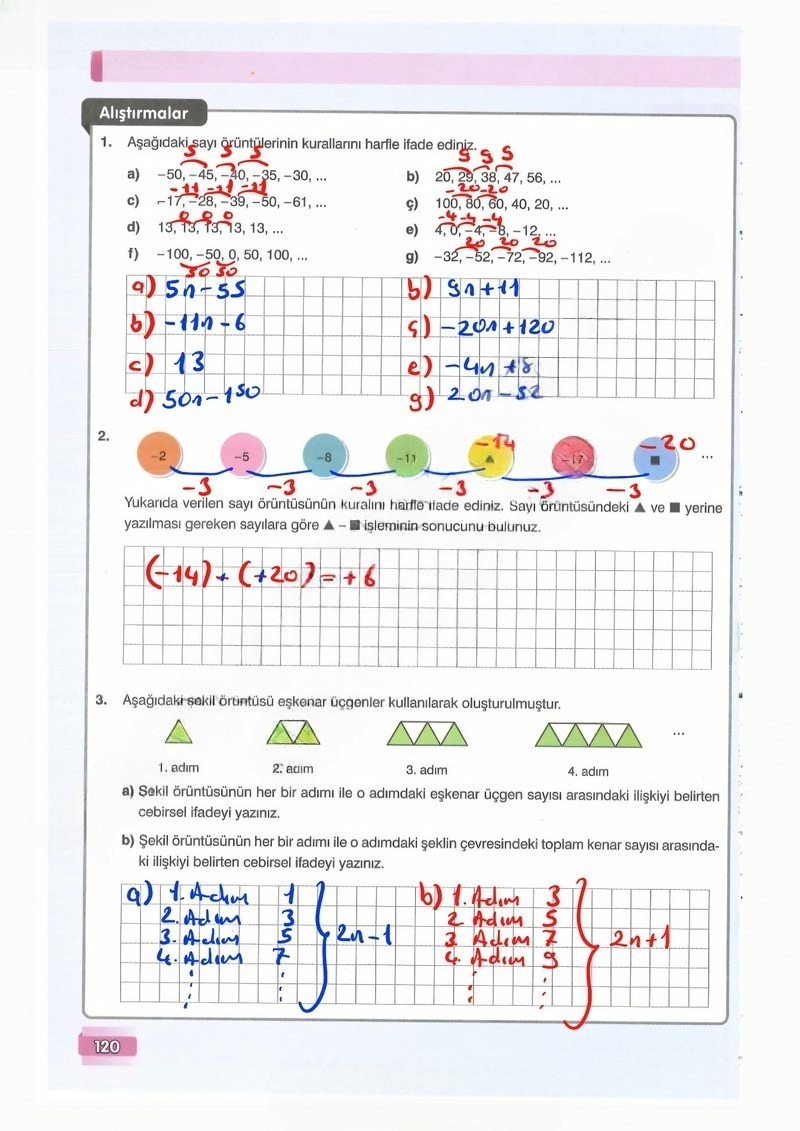 Alıştırmalar
1. Aşağıdaki sayı örüntülerinin kurallarını harfle ifade ediniz.
5 5 5
9 9 9
a) −50, −45, −40, −35, −30, ...
b) 20, 29, 38, 47, 56, ...
-11 -11 -11
-20 -20
c) −17, −28, −39, −50, −61, ...
ç) 100, 80, 60, 40, 20, ...
0 0 0
-4 -4 -4
d) 13, 13, 13, 13, 13, ...
e) 4, 0, −4, −8, −12, ...
20 20 20
f) −100, −50, 0, 50, 100, ...
g) −32, −52, −72, −92, −112, ...
50 50
a) 5n-55
b) 9n+11
b) -11n-6
ç) -20n+120
c) 13
e) -4n+8
d) 50n-150
g) 20n-52
2.
−2 −5 −8 −11 ▲ -14 −17 ■ -20 ...
-3 -3 -3 -3 -3 -3
Yukarıda verilen sayı örüntüsünün kuralını harfle ifade ediniz. Sayı örüntüsündeki ▲ ve ■ yerine
yazılması gereken sayılara göre ▲ – ■ işleminin sonucunu bulunuz.
(-14)+(+20)=+6
3. Aşağıdaki şekil örüntüsü eşkenar üçgenler kullanılarak oluşturulmuştur.
...
1. adım 2. adım 3. adım 4. adım
a) Şekil örüntüsünün her bir adımı ile o adımdaki eşkenar üçgen sayısı arasındaki ilişkiyi belirten
cebirsel ifadeyi yazınız.
b) Şekil örüntüsünün her bir adımı ile o adımdaki şeklin çevresindeki toplam kenar sayısı arasında-
ki ilişkiyi belirten cebirsel ifadeyi yazınız.
a) 1. Adım 1
2. Adım 3
3. Adım 5
4. Adım 7
2n-1
b) 1. Adım 3
2 Adım 5
3. Adım 7
4. Adım 9
2n+1
120